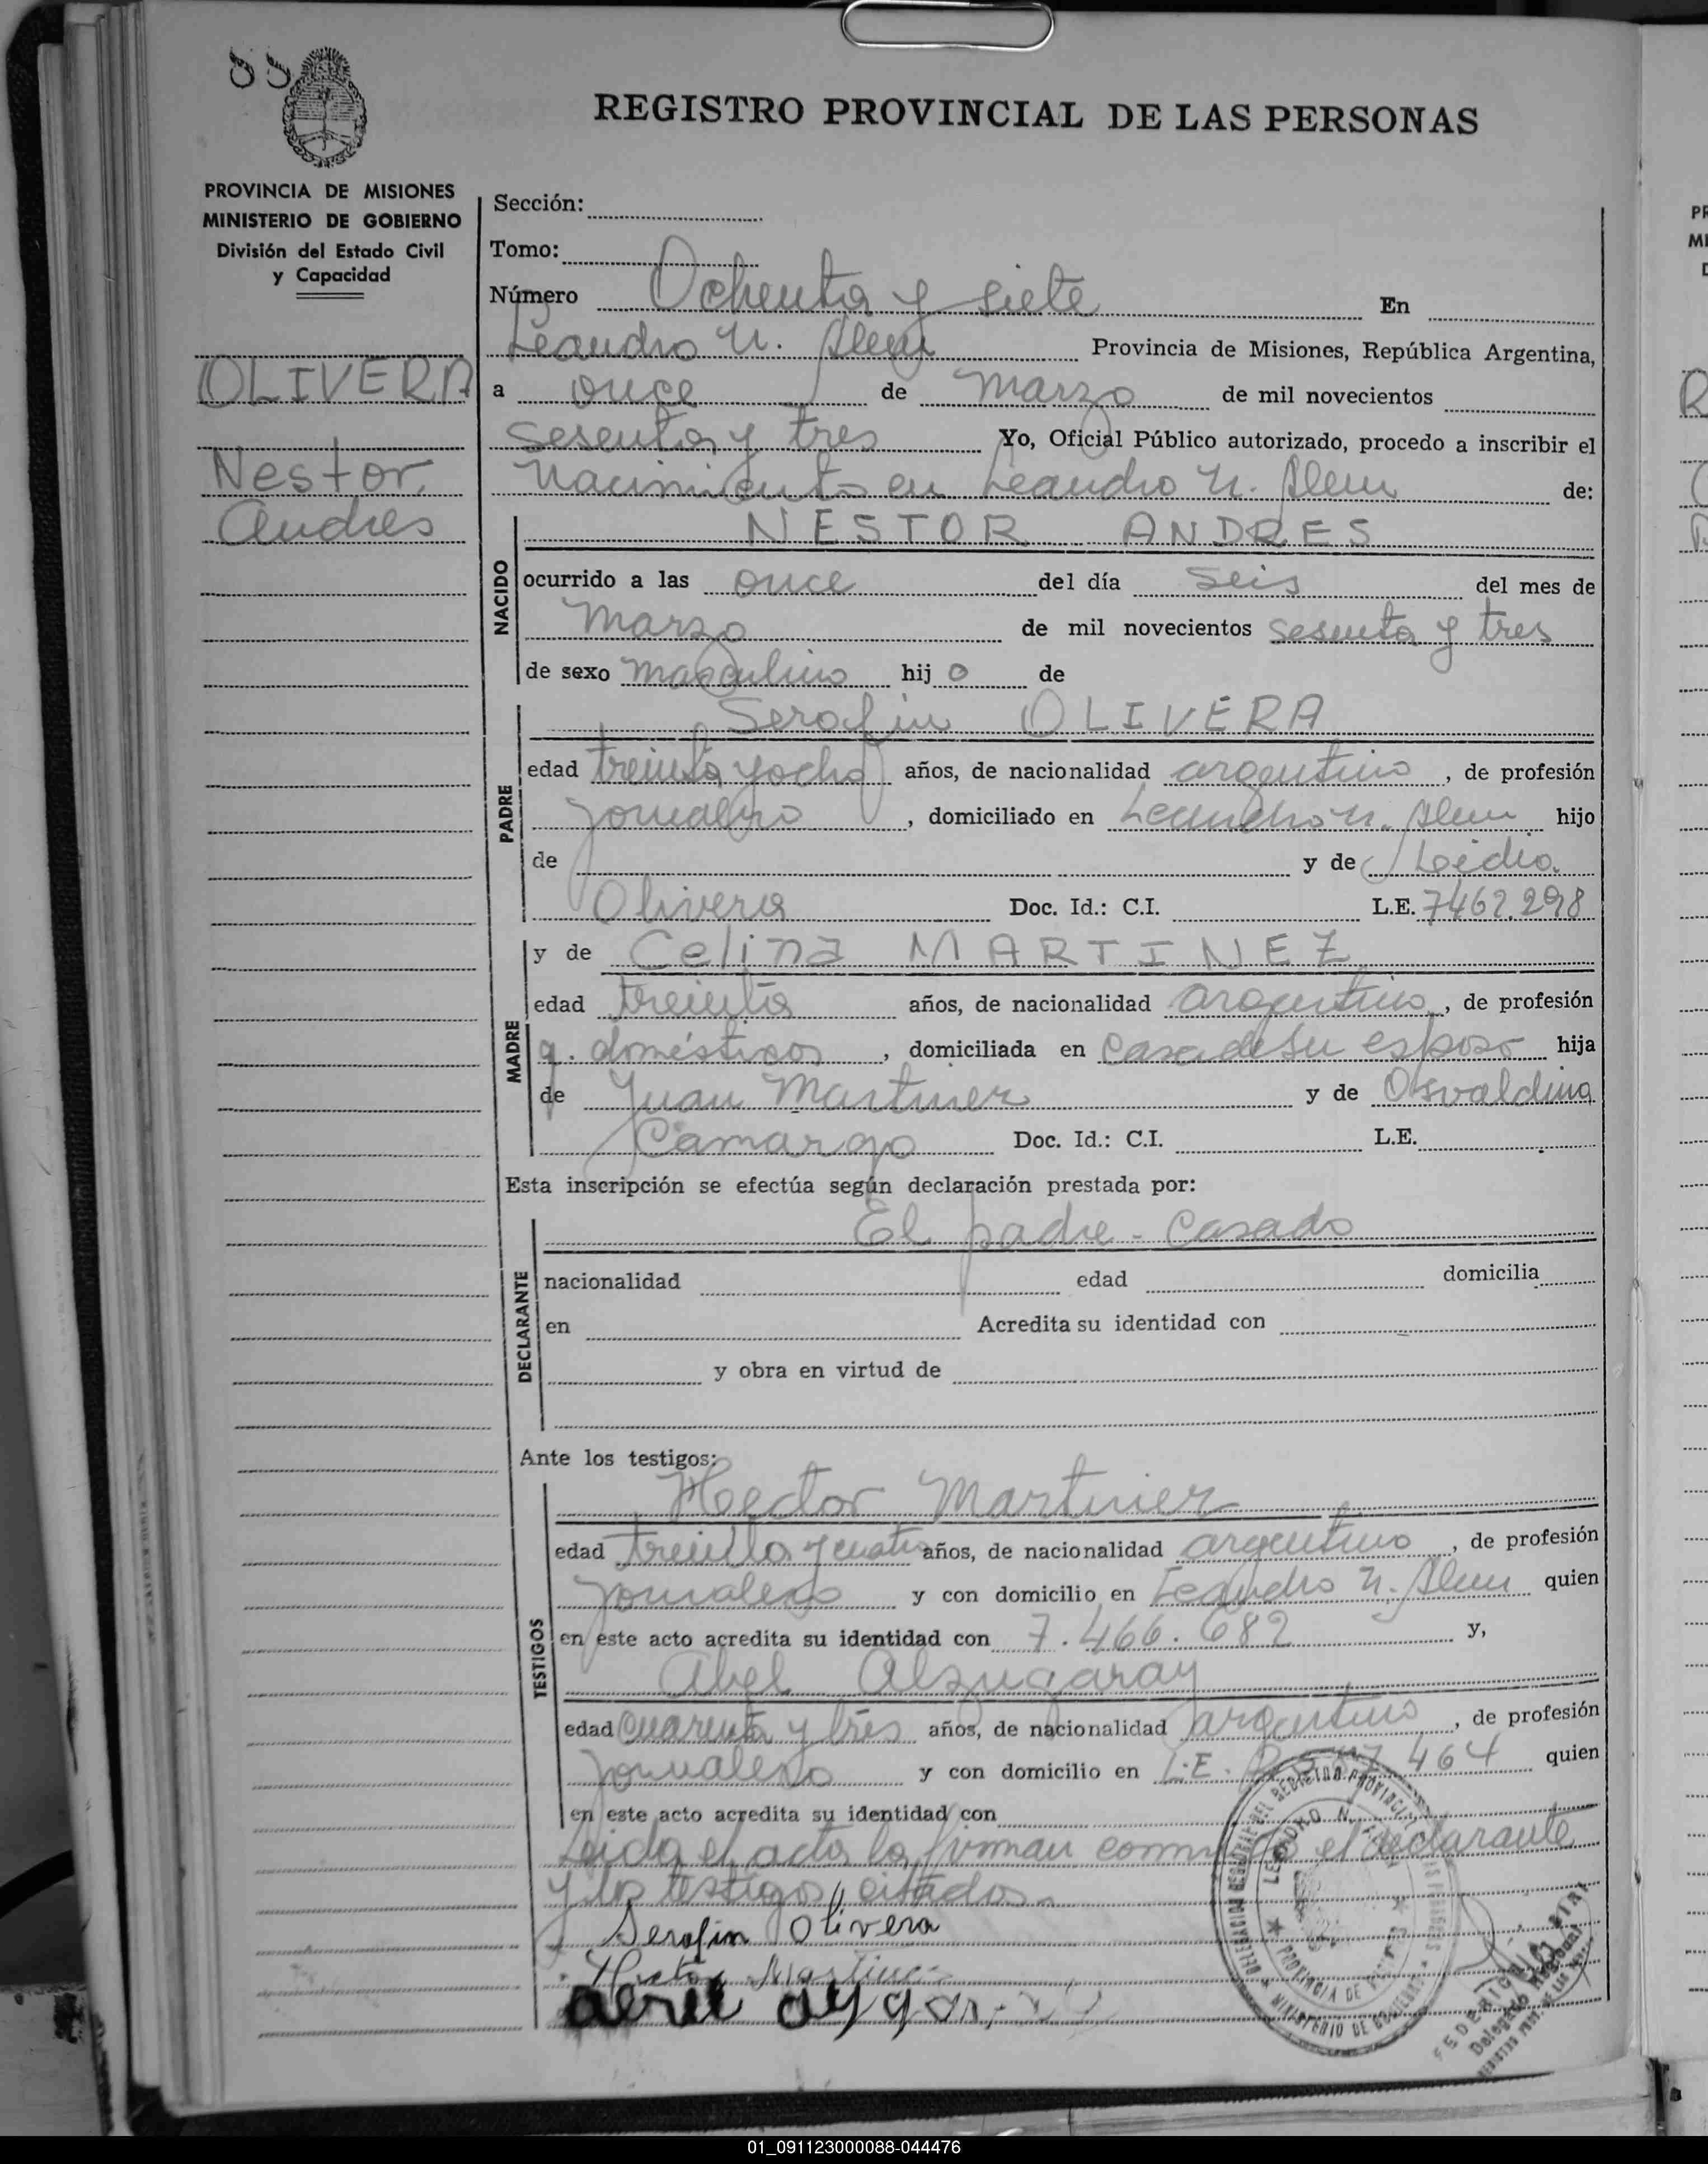 88
REGISTRO PROVINCIAL DE LAS PERSONAS
PROVINCIA DE MISIONES
MINISTERIO DE GOBIERNO
División del Estado Civil
y Capacidad
OLIVERA
Nestor
Andres
Sección:
Tomo:
Número Ochenta y siete En
Leandro N. Alem Provincia de Misiones, República Argentina,
a once de marzo de mil novecientos
sesenta y tres Yo, Oficial Público autorizado, procedo a inscribir el
nacimiento en Leandro N. Alem de:
NACIDO
NESTOR ANDRES
ocurrido a las once del día seis del mes de
marzo de mil novecientos sesenta y tres
de sexo masculino hijo de
PADRE
Serafin OLIVERA
edad treinta y ocho años, de nacionalidad argentino, de profesión
jornalero, domiciliado en Leandro N. Alem hijo
de y de Leidia
Olivera Doc. Id.: C.I. L.E. 7462.298
MADRE
y de Celina MARTINEZ
edad treinta años, de nacionalidad argentina, de profesión
q. domésticos, domiciliada en casa de su esposo hija
de Juan Martinez y de Osvaldina
Camargo Doc. Id.: C.I. L.E.
Esta inscripción se efectúa según declaración prestada por:
DECLARANTE
El padre - Casado
nacionalidad edad domicilia
en Acredita su identidad con
y obra en virtud de
Ante los testigos:
TESTIGOS
Hector Martinez
edad treinta y cuatro años, de nacionalidad argentino, de profesión
jornalero y con domicilio en Leandro N. Alem quien
en este acto acredita su identidad con 7.466.682 y,
Abel Alzugaray
edad cuarenta y tres años, de nacionalidad argentino, de profesión
jornalero y con domicilio en L.E. 464 quien
en este acto acredita su identidad con
Leida el acta la firman conmigo el declarante
y los testigos citados.
Serafin Olivera
Hector Martinez
DELEGACION DEL REGISTRO PROVINCIAL DE LAS PERSONAS
MINISTERIO DE GOBIERNO
LEANDRO N. ALEM
PROVINCIA DE MISIONES
FEDERICO
Delegado Regional
01_091123000088-044476